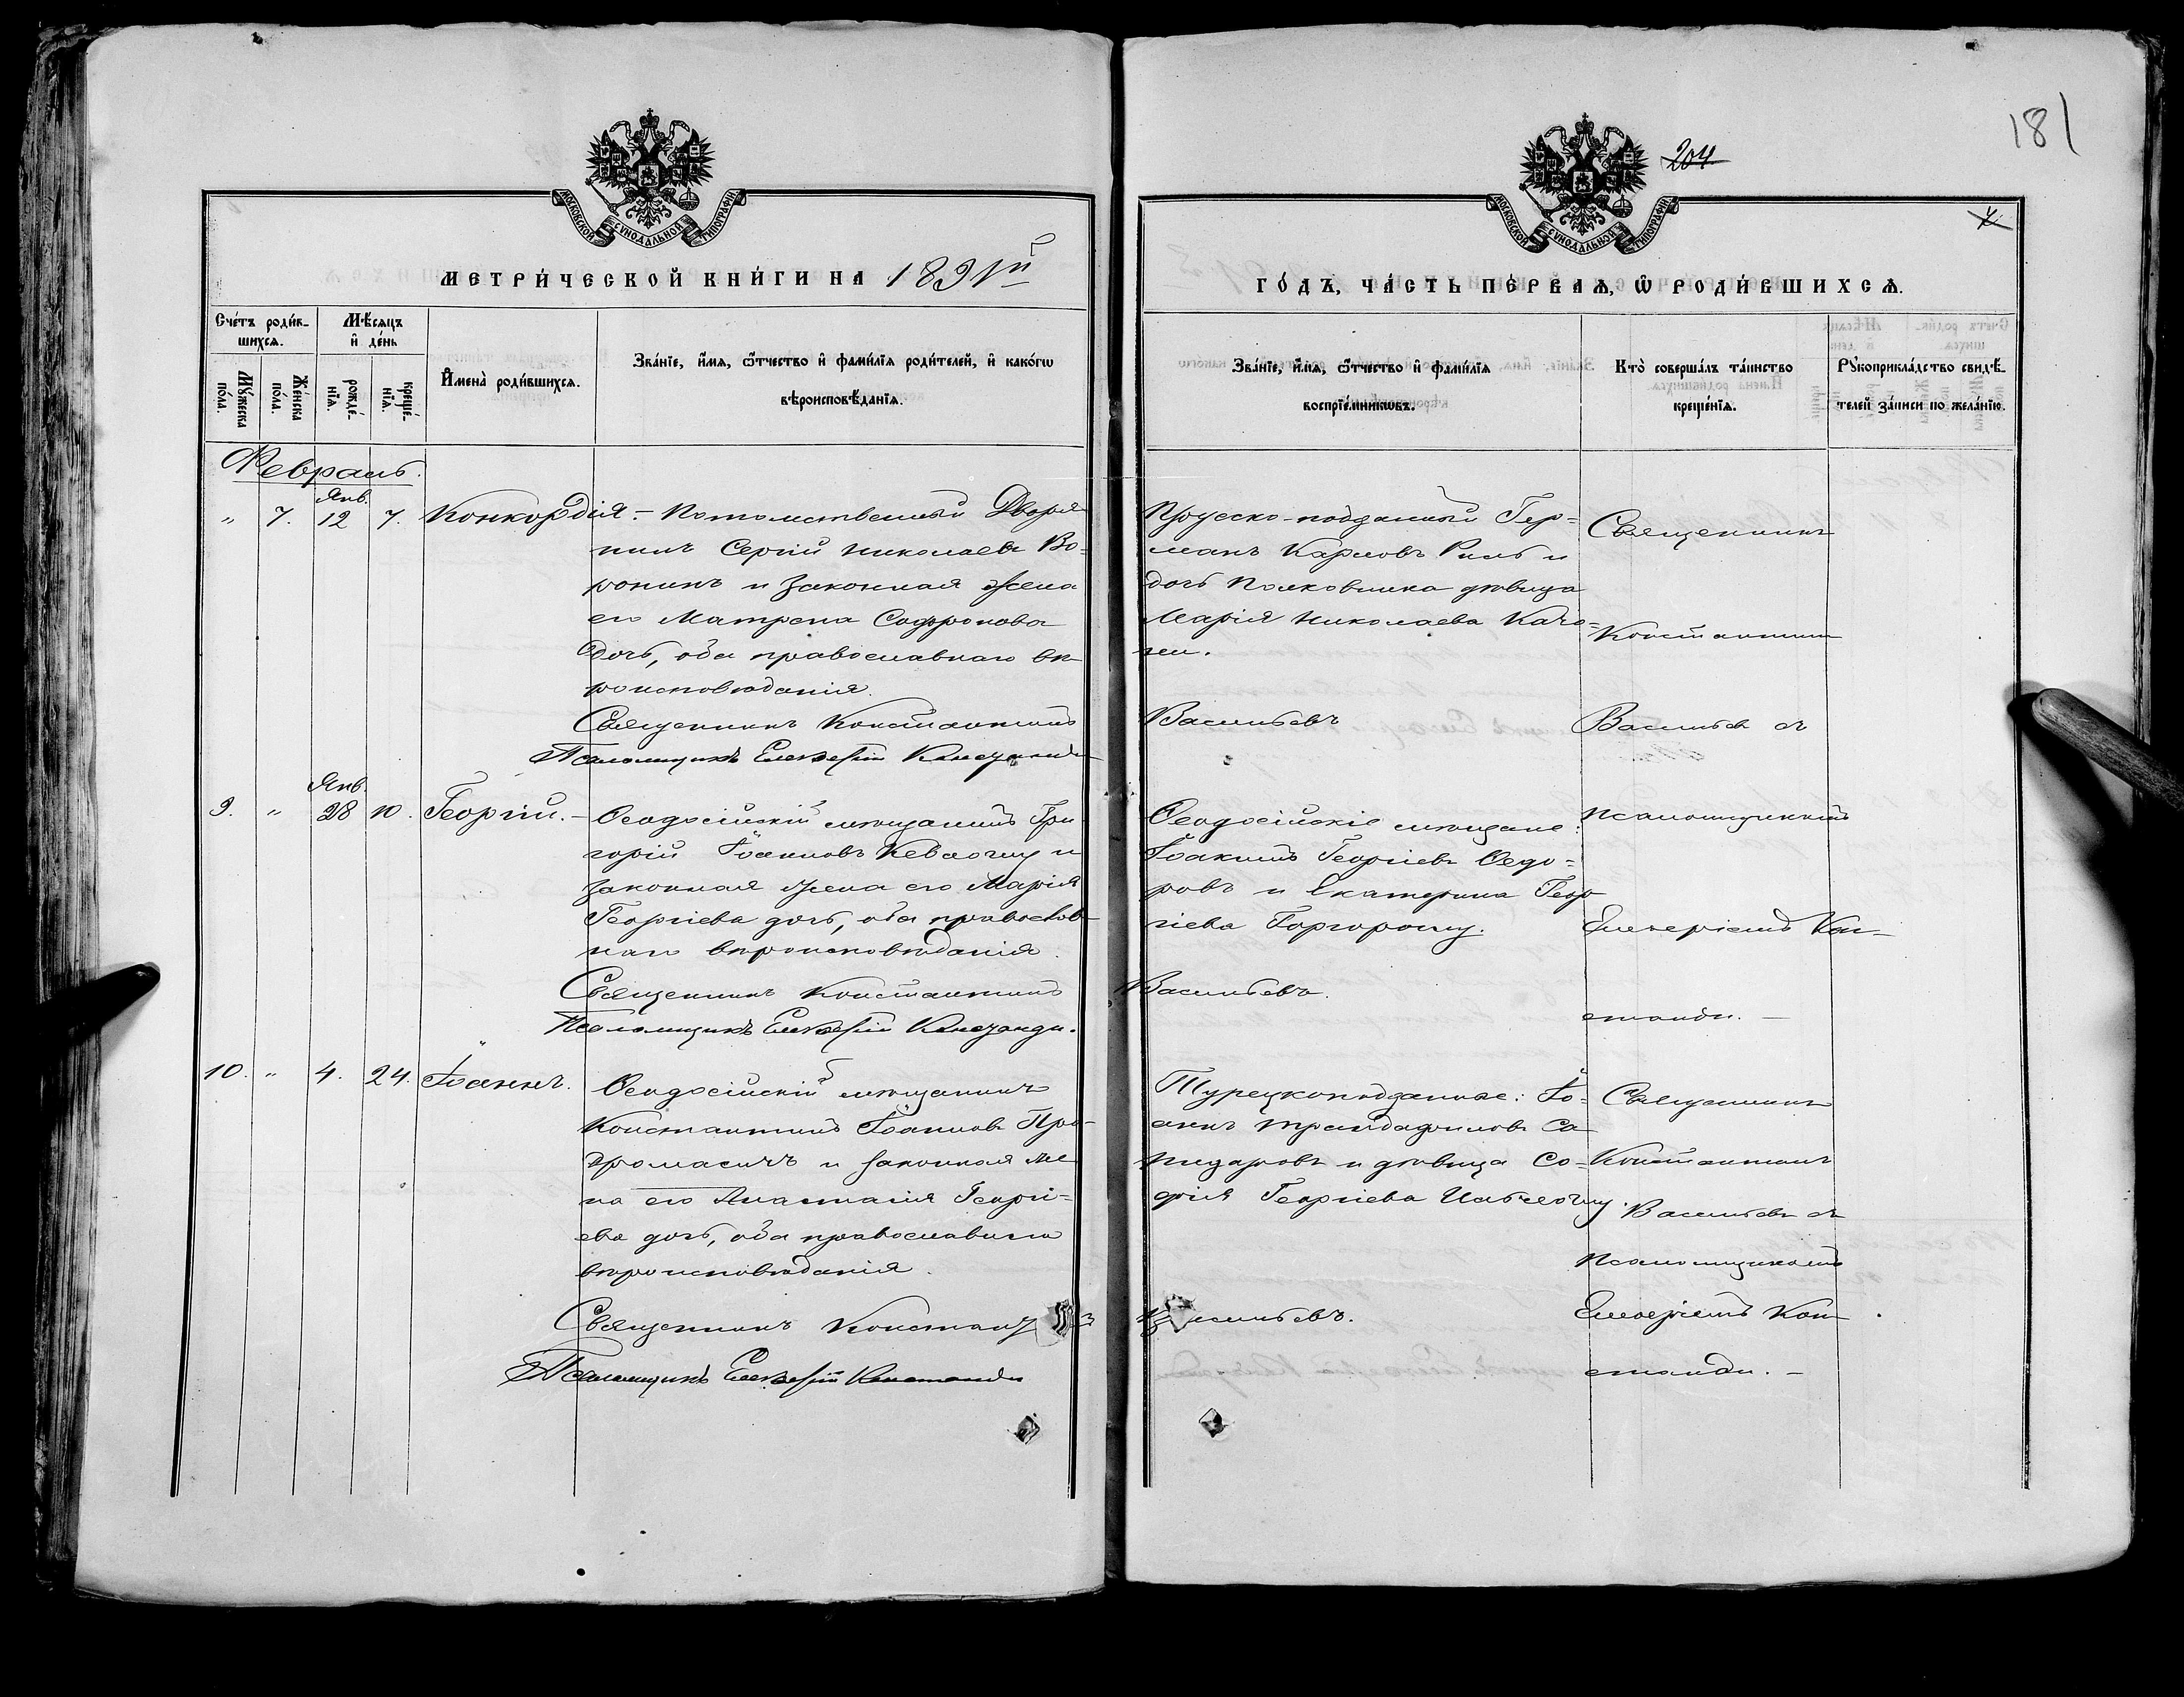 181
204
МОСКОВСКОЙ СѴНОДАЛЬНОЙ ТИПОГРАФІИ
МОСКОВСКОЙ СѴНОДАЛЬНОЙ ТИПОГРАФІИ
МЕТРИ́ЧЕСКОЙ КНИ́ГИ НА 1891й
ГО́ДЪ, ЧА́СТЬ ПЕ́РВАѦ, Ѽ РОДИ́ВШИХСѦ.
Сче́тъ роди́в-
шихсѧ.
Мꙋ́жеска по́ла.
Же́нска по́ла.
Мѣ́сѧцъ
и҆ де́нь
рожде́-
нїѧ.
креще́-
нїѧ.
И҆мена̀ роди́вшихсѧ.
Зва́нїе, и҆́мѧ, ѻ҆́тчество и҆ фами́лїѧ роди́телей, и҆ како́гѡ
вѣроисповѣ́данїѧ.
Зва́нїе, и҆́мѧ, ѻ҆́тчество и҆ фами́лїѧ
воспрїе́мникѡвъ.
Кто̀ соверша́лъ та́инство
креще́нїѧ.
Рꙋкоприкла́дство свидѣ́-
телей за́писи по жела́нїю.
Февраль.
Янв.
" 7. 12 7. Конкордія. – Потомственный Дворя-
нинъ Сергій Николаевъ Во-
ронинъ и законная жена
его Матрена Софронова
дочь, оба православнаго вѣ-
роисповѣданія.
Священникъ Константинъ Васильевъ
Псаломщикъ Елевѳерій Констанди
Прусско-подданный Гер-
манъ Карловъ Риль и
дочь Полковника дѣвица
Марія Николаева Качо-
ни.
Священникъ
Константинъ
Васильевъ съ
Янв.
9. " 28 10. Георгій. – Ѳеодосійскій мѣщанинъ Гри-
горій Іоанновъ Кевлочлу и
законная жена его Марія
Георгіева дочь, оба православ-
наго вѣроисповѣданія.
Священникъ Константинъ Васильевъ.
Псаломщикъ Елевѳерій Констанди.
Ѳеодосійскіе мѣщане:
Іоакимъ Георгіевъ Ѳедо-
ровъ и Екатерина Геор-
гіева Горгороглу.
псаломщикомъ
Елевѳеріемъ Кон-
станди. –
10. " 4. 24. Іоаннъ. Ѳеодосійскій мѣщанинъ
Константинъ Іоанновъ Про-
дромасичъ и законная же-
на его Анастасія Георгі-
ева дочь, оба православнаго
вѣроисповѣданія.
Священникъ Констант
Псаломщикъ Елевѳерій Констанди
Турецкоподданные: Іо-
аннъ Трандафиловъ Са-
пидзровъ и дѣвица Со-
фія Георгіева
Священникъ
Константинъ
Васильевъ съ
псаломщикомъ
Елевѳеріемъ Кон-
станди. –